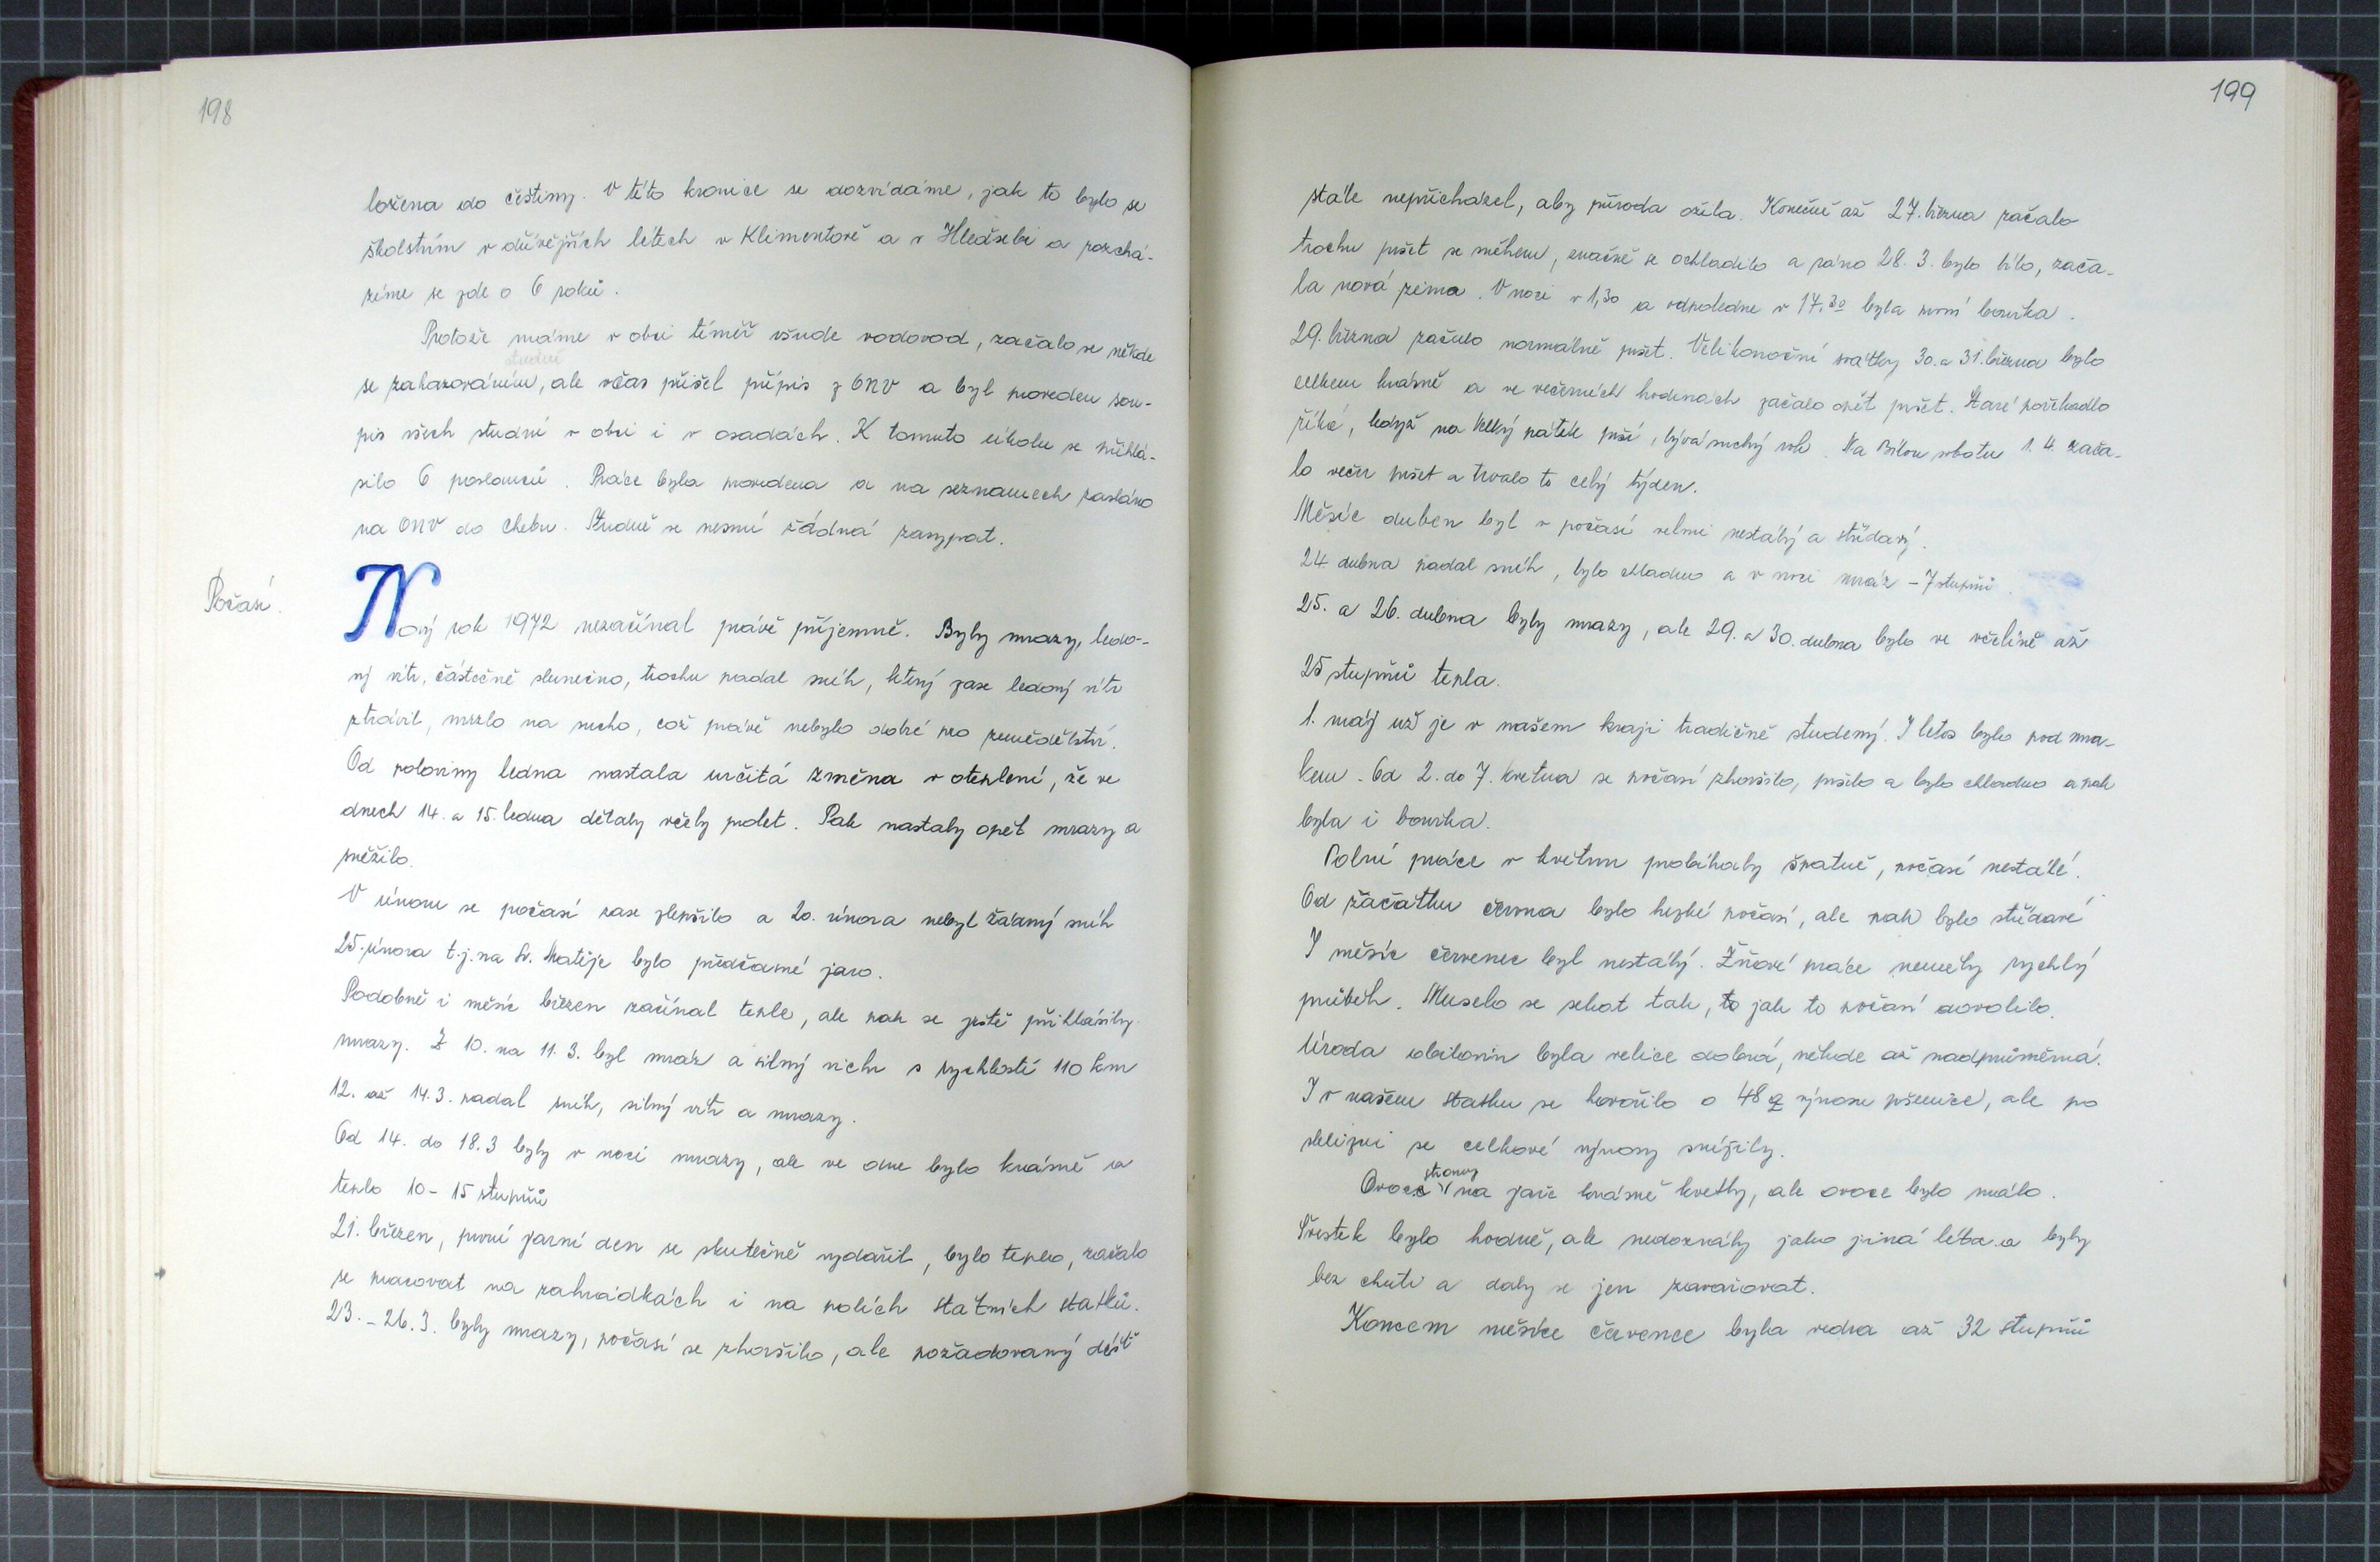 198
ložena do češtiny. V této kronice se dozvídáme, jak to bylo se
školstvím v dřívějších létech v Klimentově a v Hleďsebi a rozchá-
zíme se zde o 6 roků.
Protože máme v obci téměř všude vodovod, začalo se někde
studně
se zahazováním, ale včas přišel přípis z ONV a byl proveden sou-
pis všech studní v obci i v osadách. K tomuto úkolu se přihlá-
silo 6 poslanců. Práce byla provedena a na seznamech zasláno
na ONV do Chebu. Studně se nesmí žádná zasypat.
Počasí.
Nový rok 1972 nezačínal právě příjemně. Byly mrazy, ledo-
vý vítr, částečně slunečno, trochu padal sníh, který zase ledový vítr
ztrávil, mrzlo na sucho, což právě nebylo dobré pro zemědělství.
Od poloviny ledna nastala určitá změna v oteplení, že ve
dnech 14. a 15. ledna dělaly včely prolet. Pak nastaly opět mrazy a
sněžilo.
V únoru se počasí zase zlepšilo a 20. února nebyl žádný sníh
25. února t.j. na Sv. Matěje bylo předčasné jaro.
Podobně i měsíc březen začínal teple, ale pak se ještě přihlásily
mrazy. Z 10. na 11. 3. byl mráz a silný vichr s rychlostí 110 km
12. až 14. 3. padal sníh, silný vítr a mrazy.
Od 14. do 18. 3 byly v noci mrazy, ale ve dne bylo krásně a
teplo 10 - 15 stupňů
21. březen, první jarní den se skutečně vydařil, bylo teplo, začalo
se pracovat na zahrádkách i na polích státních statků.
23. - 26. 3. byly mrazy, počasí se zhoršilo, ale požadovaný déšť
199
stále nepřicházel, aby příroda ožila. Konečně až 27. března začalo
trochu pršet se sněhem, značně se ochladilo a ráno 28. 3. bylo bílo, zača-
la nová zima. V noci v 1,30 a odpoledne v 17,30 byla první bouřka.
29. března začalo normálně pršet. Velikonoční svátky 30. a 31. března bylo
celkem krásně a ve večerních hodinách začalo opět pršet. Staré pořekadlo
říká, když na Velký pátek prší, bývá suchý rok. Na Bílou sobotu 1. 4. zača-
lo večer pršet a trvalo to celý týden.
Měsíc duben byl v počasí velmi nestálý a střídavý.
24 dubna padal sníh, bylo chladno a v noci mráz - 7 stupňů.
25. a 26. dubna byly mrazy, ale 29. a 30. dubna bylo ve včelíně až
25 stupňů tepla.
1. máj už je v našem kraji tradičně studený. I letos bylo pod mra-
kem. Od 2. do 7. května se počasí zhoršilo, pršelo a bylo chladno a pak
byla i bouřka.
Polní práce v květnu probíhaly špatně, počasí nestálé.
Od začátku června bylo hezké počasí, ale pak bylo střídavé
I měsíc červenec byl nestálý. Žňové práce neměly rychlý
průběh. Muselo se sekat tak, to jak to počasí dovolilo.
Úroda obilovin byla velice dobrá, někde až nadprůměrná.
I v našem statku se hovořilo o 48 q výnosu pšenice, ale po
sklizni se celkové výnosy snížily.
stromy
Ovoce na jaře krásně kvetly, ale ovoce bylo málo.
Švestek bylo hodně, ale nedozrály jako jiná léta a byly
bez chuti a daly se jen zavařovat.
Koncem měsíce července byla vedra až 32 stupňů